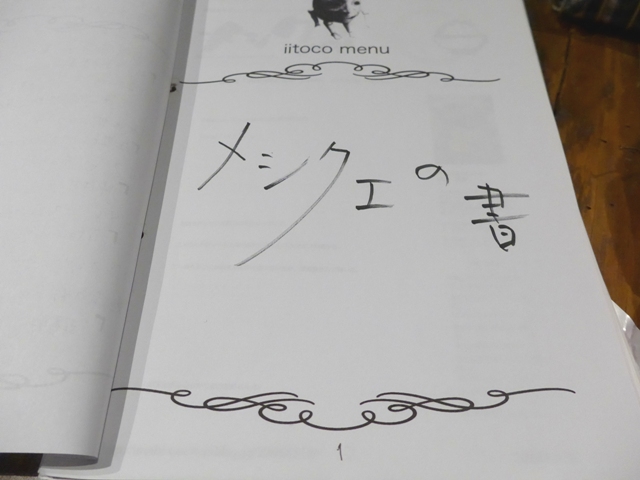 iitoco menu
メシクエの書
1